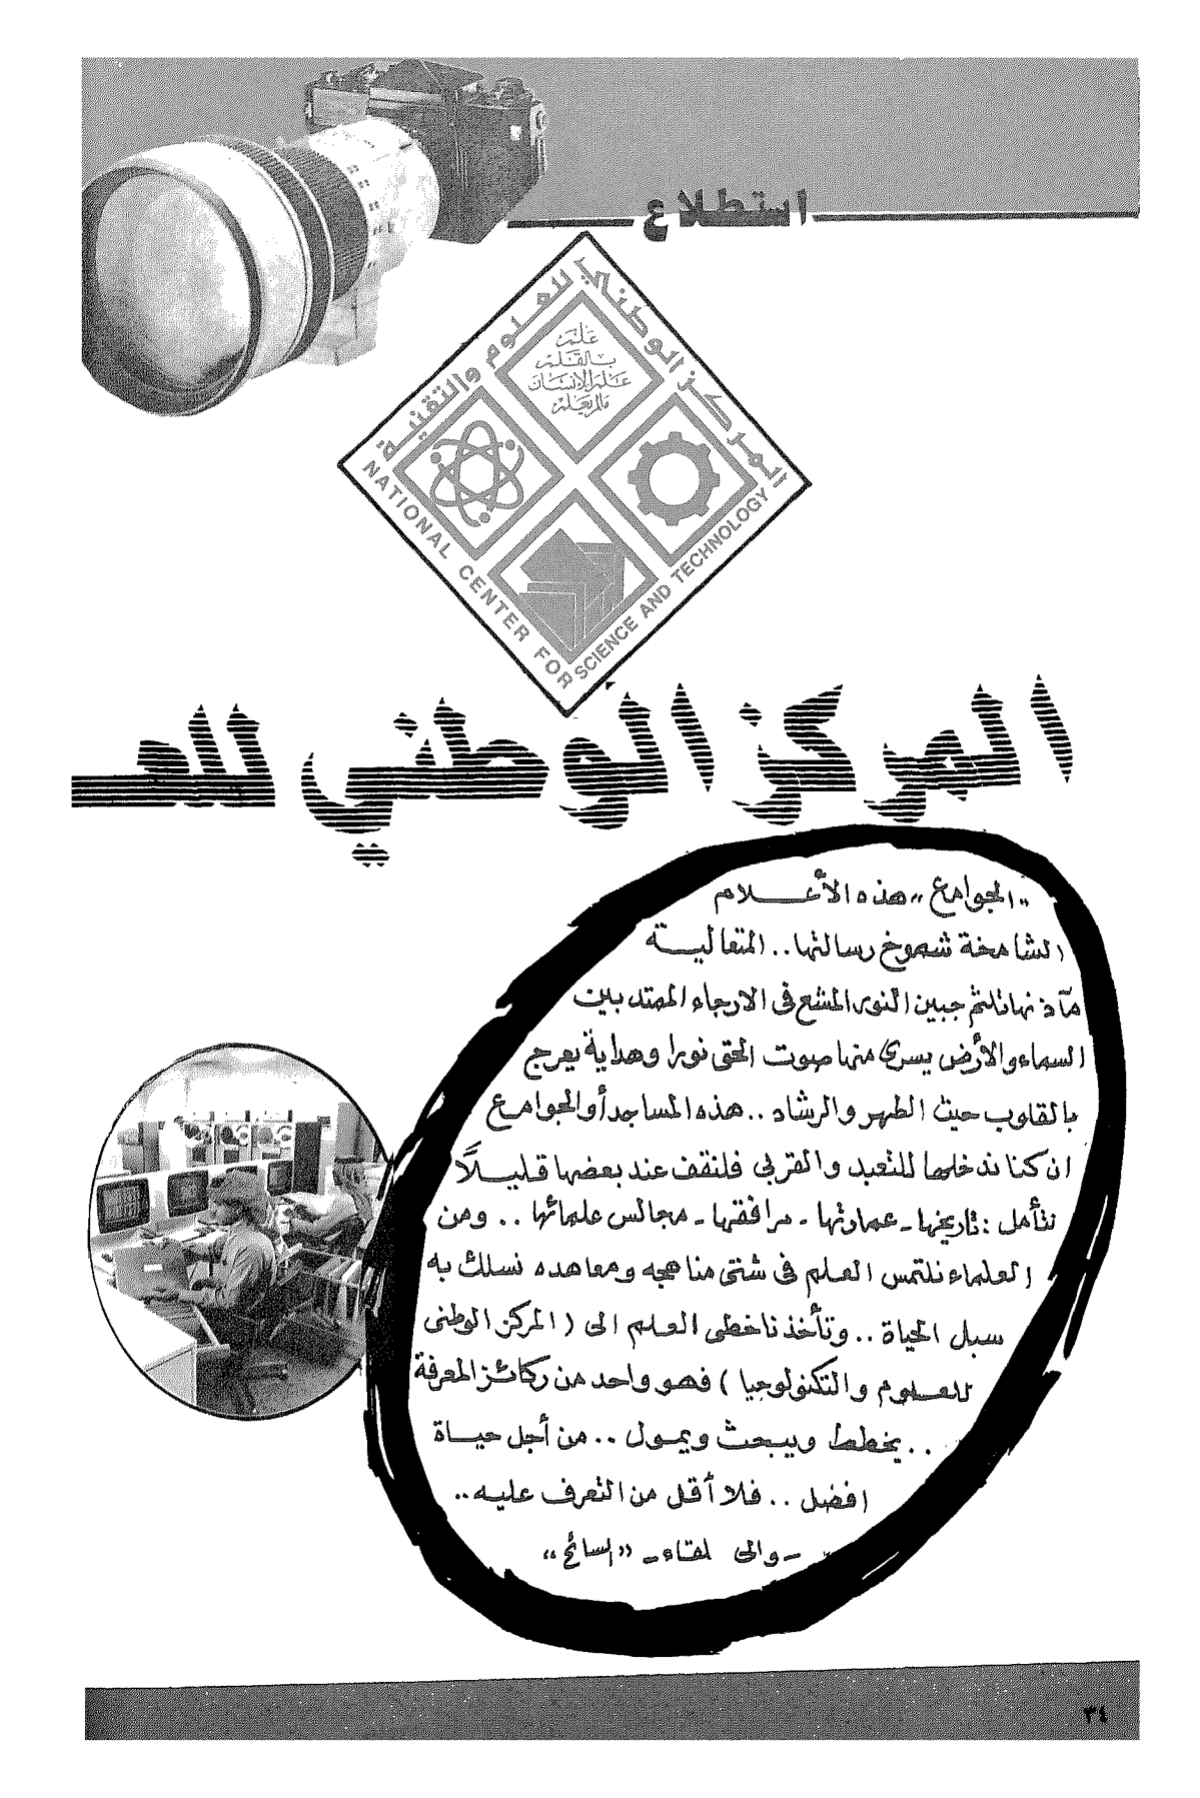 استطلاع
المركز الوطني للعلوم والتقنية
علم
بالقلم
علم الإنسان
مالم يعلم
NATIONAL CENTER FOR SCIENCE AND TECHNOLOGY
المركز الوطني للعـ
"الجوامع" هذه الأعـلام
الشامخة شموخ رسالتها.. المتعاليـة
مآذنها تلثم جبين النور المشع فى الارجاء الممتد بين
السماء والأرض يسرى منها صوت الحق نورا وهداية يعرج
بالقلوب حيث الطهر والرشاد .. هذه المساجد أو الجوامع
ان كنا ندخلها للتعبد والقربى فلنقف عند بعضها قليـلاً
نتأمل : تاريخها - عمارتها - مرافقها - مجالس علمائها .. ومن
العلماء نلتمس العلم فى شتى مناهجه ومعاهده نسلك به
سبل الحياة .. وتأخذنا خطى العلم الى ( المركز الوطنى
للعـلوم والتكنولوجيا ) فهو واحد من ركائز المعرفة
.. يخطط ويبحث ويمـول .. من أجل حيـاة
افضل .. فلا أقل من التعرف عليـه ..
- والى لقاء - "السائح"
٣٤